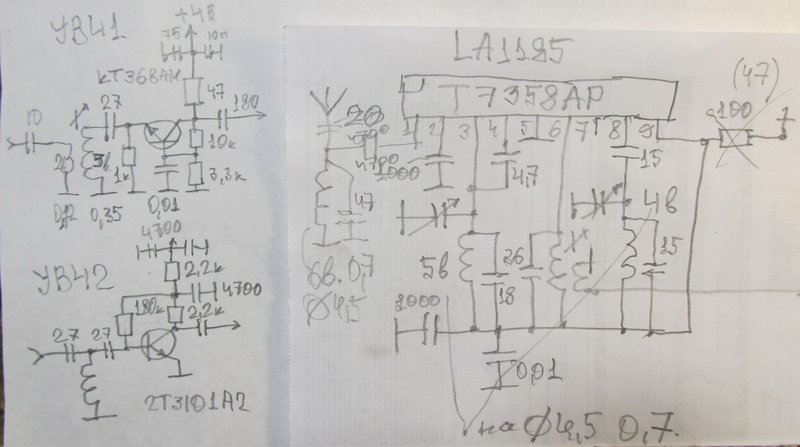 УВЧ1
+4В
75
10н
КТ368АМ
47
10
27
180
10к
2
3в
1к
3,3к
0,12
0,35
0,01
УВЧ2
4700
2,2к
4700
180к
2,2к
27
27
2Т3101А2
LA1185
T7358AP
(47)
20
100
1
2
3
4
5
6
7
8
9
1000
4,7
15
47
6в. 0,7
Ø4,5
5в
18
36
4в
15
1000
0,01
на Ø4,5 0,7.